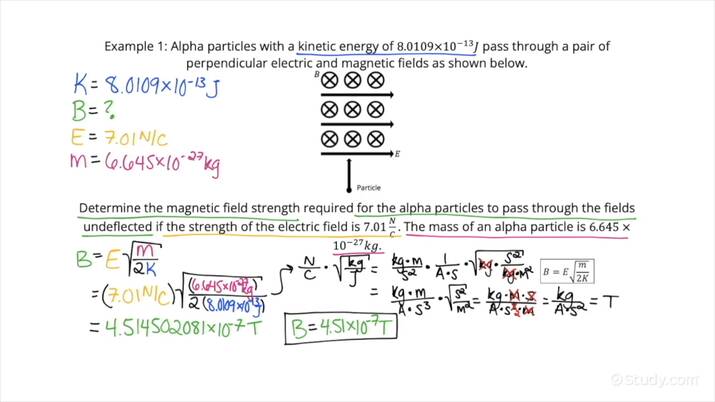 Example 1: Alpha particles with a kinetic energy of 8.0109×10⁻¹³J pass through a pair of
perpendicular electric and magnetic fields as shown below.
K = 8.0109×10⁻¹³ J
B = ?
E = 7.01 N/C
m = 6.645×10⁻²⁷ kg
B
E
Particle
Determine the magnetic field strength required for the alpha particles to pass through the fields
undeflected if the strength of the electric field is 7.01 N/C. The mass of an alpha particle is 6.645 ×
10⁻²⁷kg.
B = E√(m/2K)
= (7.01 N/C)√((6.645×10⁻²⁷kg)/2(8.0109×10⁻¹³J))
= 4.514502081×10⁻⁷ T
B = 4.51×10⁻⁷ T
→ N/C · √(kg/J) = kg·m/s² · 1/A·s · √(kg·s²/kg·m²)
B = E√(m/2K)
= kg·m/A·s³ · √(s²/m²) = kg·m·s/A·s³·m = kg/A·s² = T
©Study.com